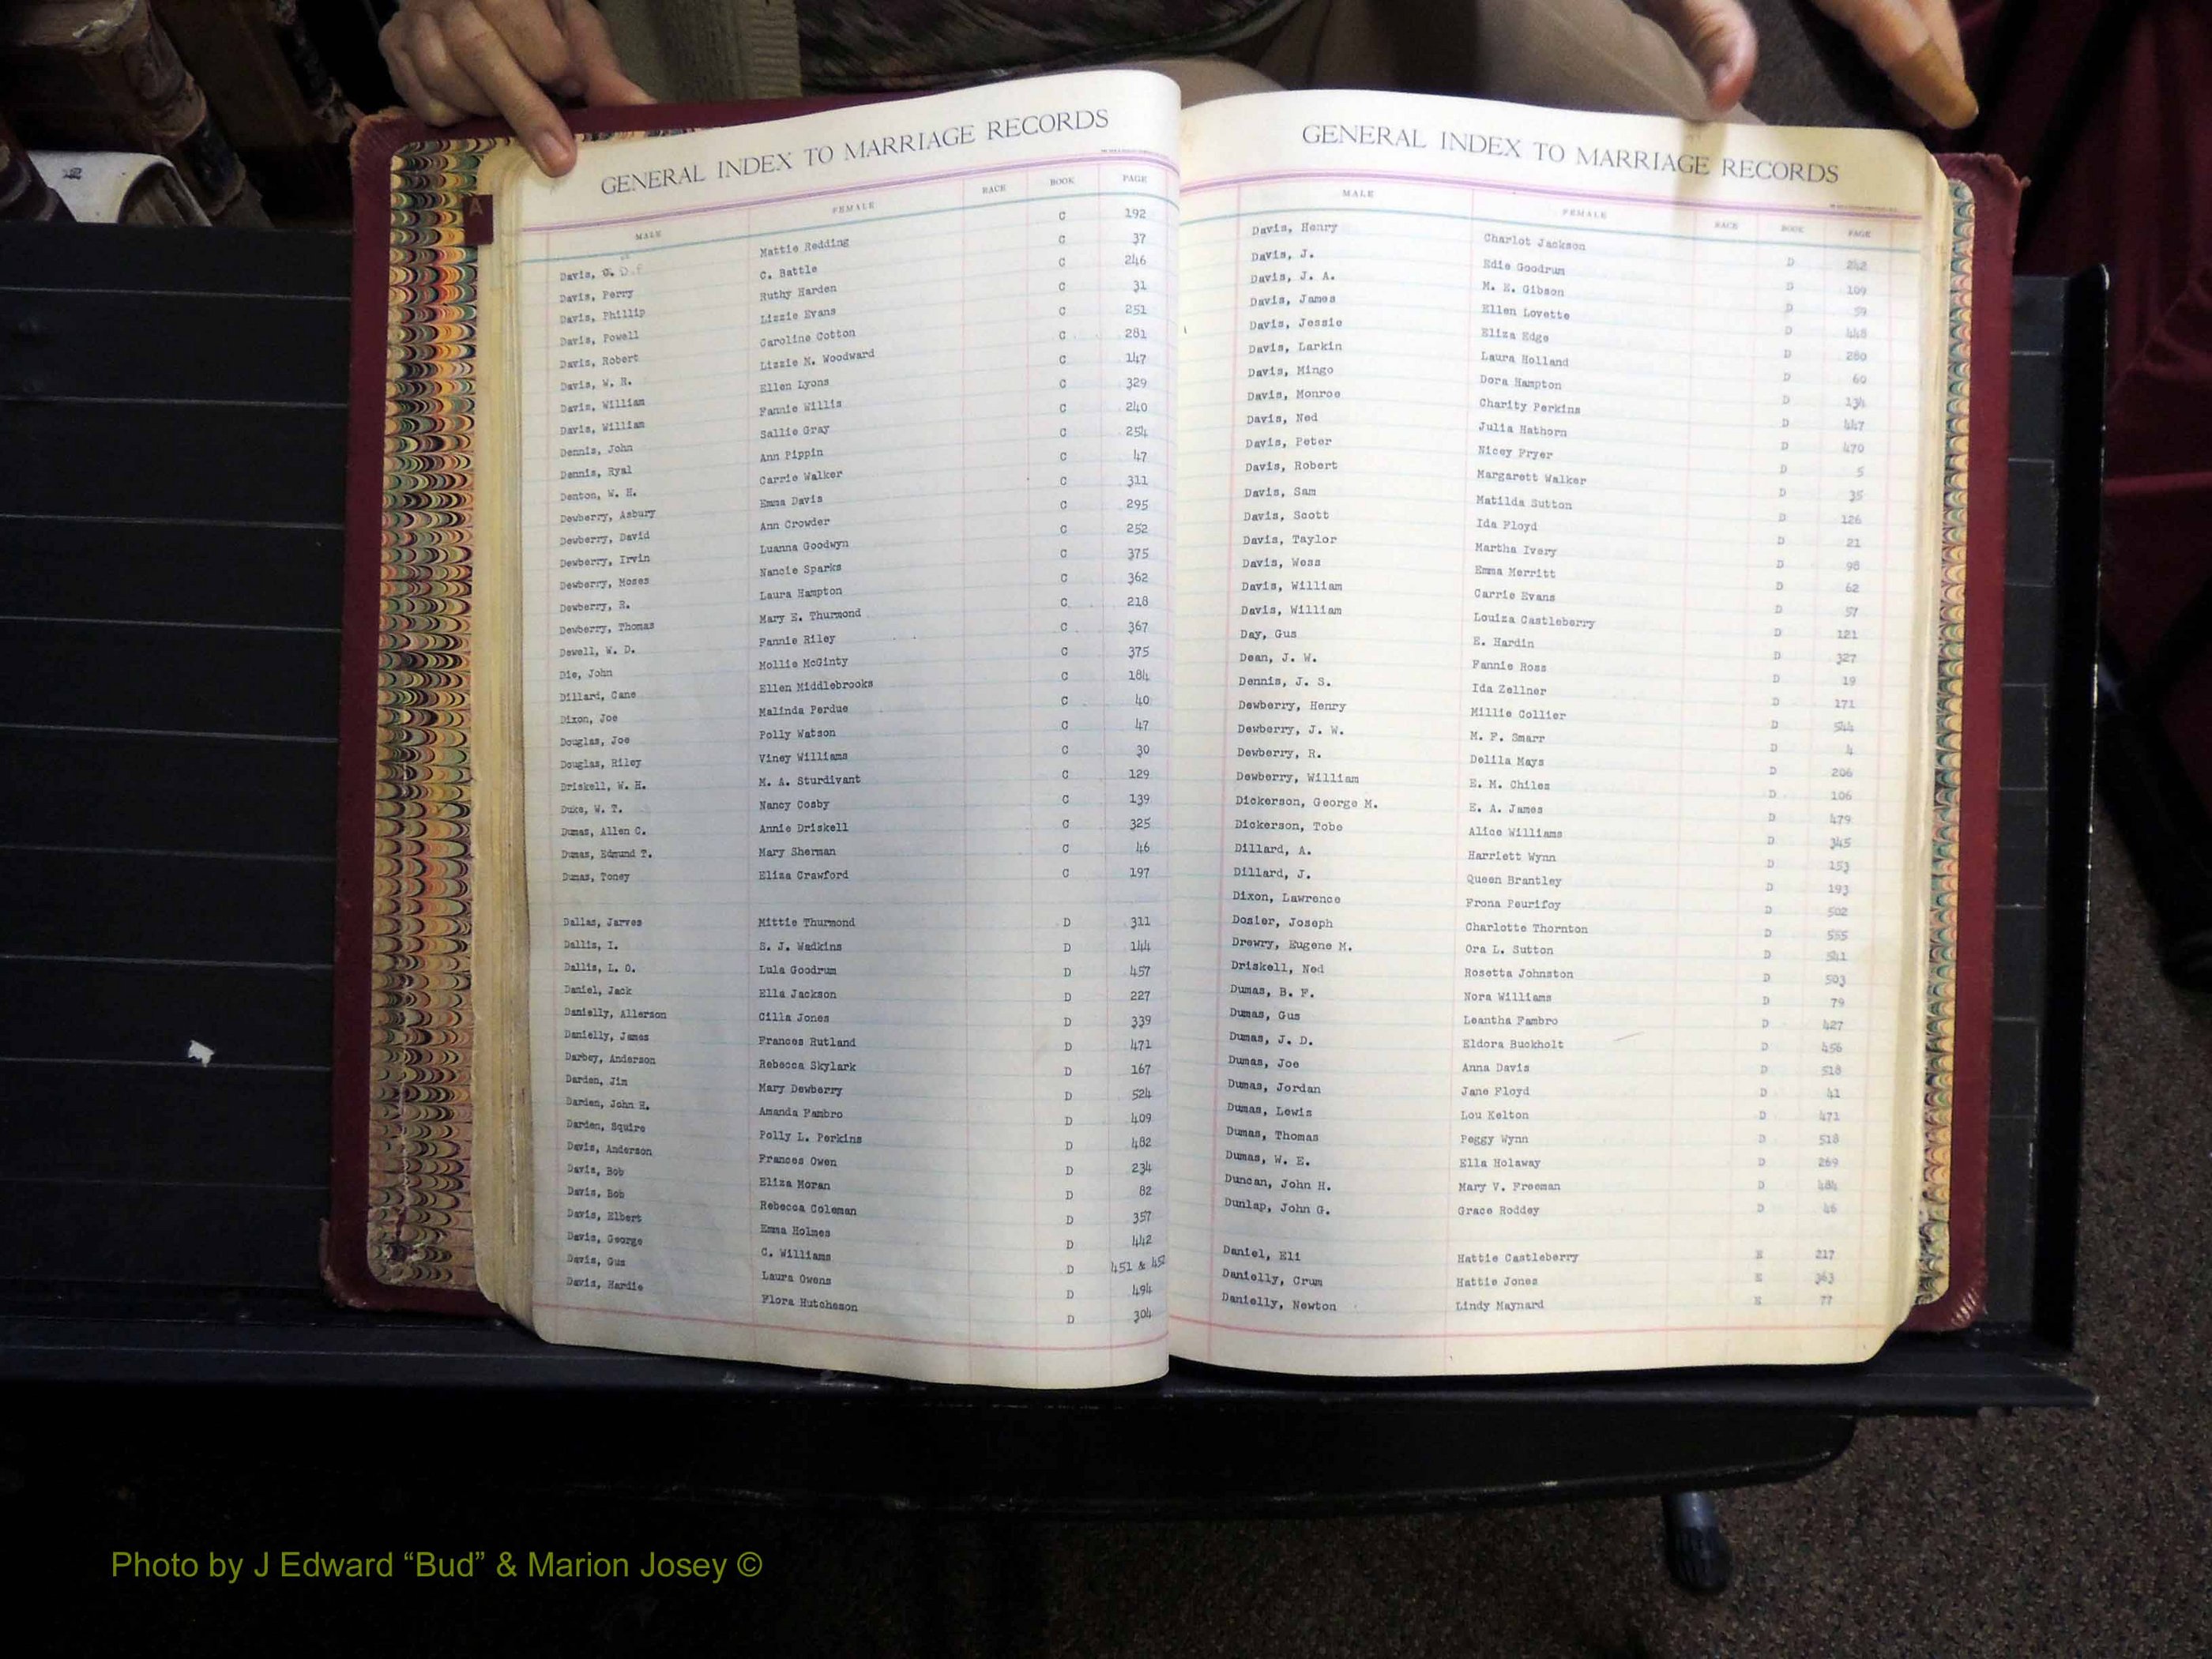 GENERAL INDEX TO MARRIAGE RECORDS
MALE FEMALE RACE BOOK PAGE
Davis, Mattie Redding C 192
Davis, Perry C. Battle C 37
Davis, Phillip Ruthy Harden C 246
Davis, Powell Lizzie Evans C 31
Davis, Robert Caroline Cotton C 251
Davis, W. R. Lizzie M. Woodward C 281
Davis, William Ellen Lyons C 147
Davis, William Fannie Willis C 329
Dennis, John Sallie Gray C 240
Dennis, Ryal Ann Pippin C 254
Denton, W. H. Carrie Walker C 47
Dewberry, Asbury Emma Davis C 311
Dewberry, David Ann Crowder C 295
Dewberry, Irvin Luanna Goodwyn C 252
Dewberry, Moses Nancie Sparks C 375
Dewberry, R. Laura Hampton C 362
Dewberry, Thomas Mary E. Thurmond C 218
Dewell, W. D. Fannie Riley C 367
Die, John Mollie McGinty C 375
Dillard, Cane Ellen Middlebrooks C 184
Dixon, Joe Malinda Perdue C 40
Douglas, Joe Polly Watson C 47
Douglas, Riley Viney Williams C 30
Driskell, W. H. M. A. Sturdivant C 129
Duke, W. T. Nancy Cosby C 139
Dumas, Allen C. Annie Driskell C 325
Dumas, Edmund T. Mary Sherman C 46
Dumas, Toney Eliza Crawford C 197
Dallas, Jarves Mittie Thurmond D 311
Dallis, I. S. J. Wadkins D 144
Dallis, L. O. Lula Goodrum D 457
Daniel, Jack Ella Jackson D 227
Danielly, Allerson Cilla Jones D 339
Danielly, James Frances Rutland D 471
Darbey, Anderson Rebecca Skylark D 167
Darden, Jim Mary Dewberry D 524
Darden, John H. Amanda Fambro D 409
Darden, Squire Polly L. Perkins D 482
Davis, Anderson Frances Owen D 234
Davis, Bob Eliza Moran D 82
Davis, Bob Rebecca Coleman D 357
Davis, Elbert Emma Holmes D 442
Davis, George C. Williams D 451 & 452
Davis, Gus Laura Owens D 494
Davis, Hardie Flora Hutcheson D 304
GENERAL INDEX TO MARRIAGE RECORDS
MALE FEMALE RACE BOOK PAGE
Davis, Henry Charlot Jackson D 242
Davis, J. Edie Goodrum D 109
Davis, J. A. M. E. Gibson D 59
Davis, James Ellen Lovette D 448
Davis, Jessie Eliza Edge D 280
Davis, Larkin Laura Holland D 60
Davis, Mingo Dora Hampton D 134
Davis, Monroe Charity Perkins D 447
Davis, Ned Julia Hathorn D 470
Davis, Peter Nicey Fryer D 5
Davis, Robert Margarett Walker D 35
Davis, Sam Matilda Sutton D 126
Davis, Scott Ida Floyd D 21
Davis, Taylor Martha Ivery D 98
Davis, Wess Emma Merritt D 62
Davis, William Carrie Evans D 57
Davis, William Louiza Castleberry D 121
Day, Gus E. Hardin D 327
Dean, J. W. Fannie Ross D 19
Dennis, J. S. Ida Zellner D 171
Dewberry, Henry Millie Collier D 544
Dewberry, J. W. M. F. Smarr D 4
Dewberry, R. Delila Mays D 206
Dewberry, William E. M. Chiles D 106
Dickerson, George M. E. A. James D 479
Dickerson, Tobe Alice Williams D 345
Dillard, A. Harriett Wynn D 153
Dillard, J. Queen Brantley D 193
Dixon, Lawrence Frona Peurifoy D 502
Dosier, Joseph Charlotte Thornton D 555
Drewry, Eugene M. Ora L. Sutton D 541
Driskell, Ned Rosetta Johnston D 503
Dumas, B. F. Nora Williams D 79
Dumas, Gus Leantha Fambro D 427
Dumas, J. D. Eldora Buckholt D 456
Dumas, Joe Anna Davis D 518
Dumas, Jordan Jane Floyd D 41
Dumas, Lewis Lou Kelton D 471
Dumas, Thomas Peggy Wynn D 518
Dumas, W. E. Ella Holaway D 269
Duncan, John H. Mary V. Freeman D 484
Dunlap, John G. Grace Roddey D 46
Daniel, Eli Hattie Castleberry E 217
Danielly, Crum Hattie Jones E 363
Danielly, Newton Lindy Maynard E 77
A
Photo by J Edward “Bud” & Marion Josey ©